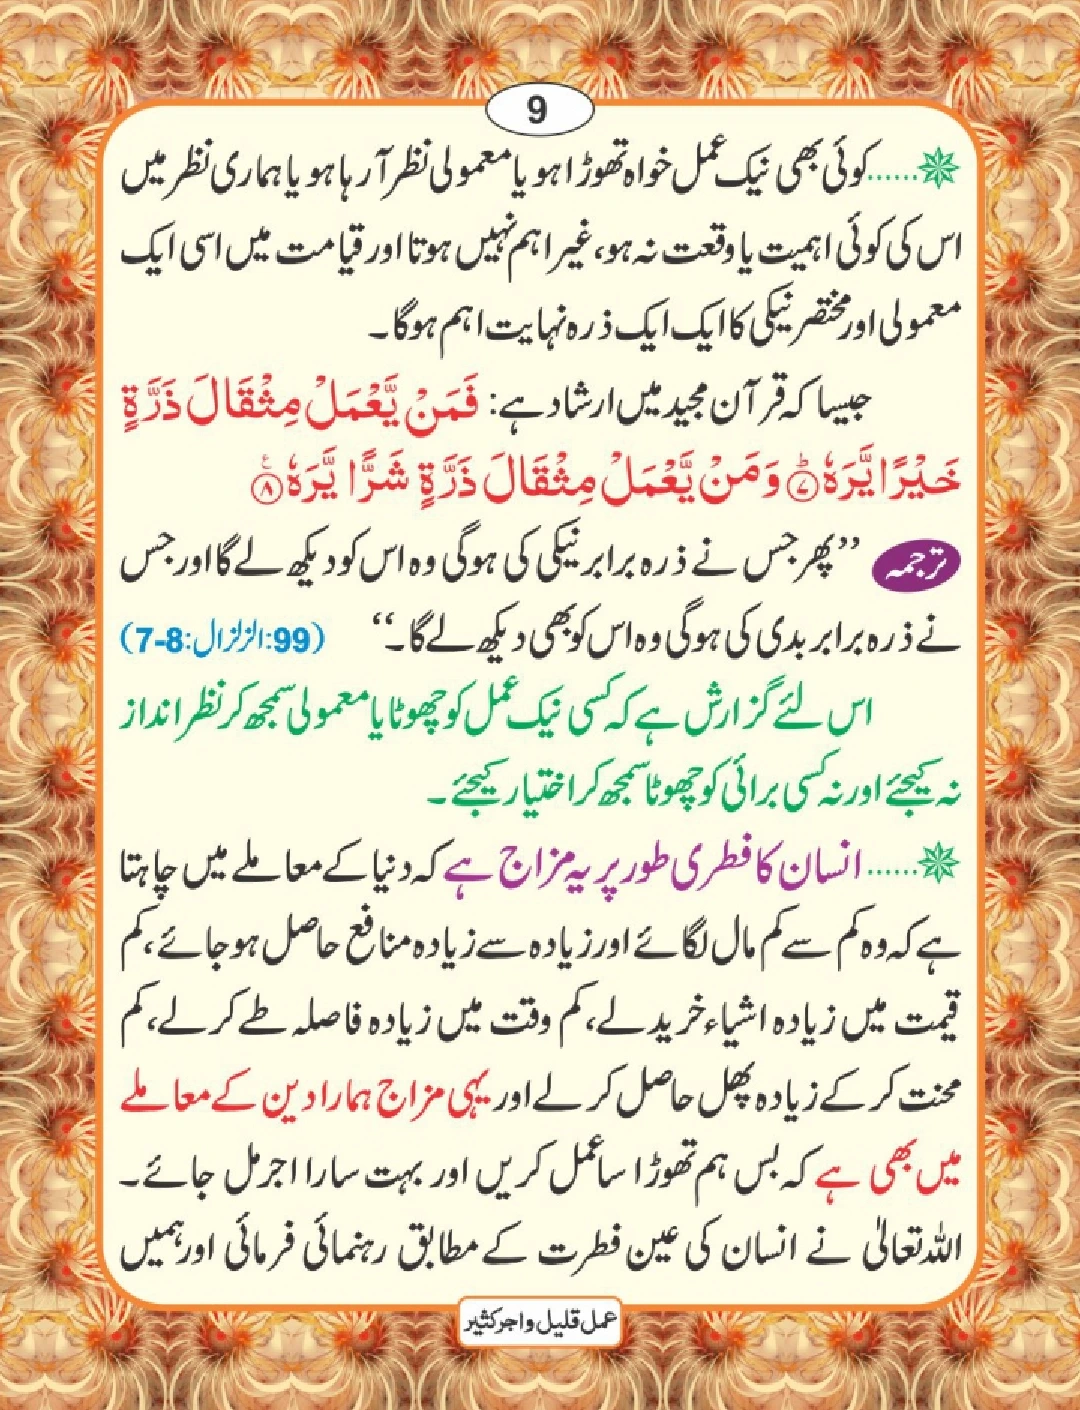 9
❇......کوئی بھی نیک عمل خواہ تھوڑا ہو یا معمولی نظر آ رہا ہو یا ہماری نظر میں
اس کی کوئی اہمیت یا وقعت نہ ہو، غیر اہم نہیں ہوتا اور قیامت میں اسی ایک
معمولی اور مختصر نیکی کا ایک ایک ذرہ نہایت اہم ہوگا۔
جیسا کہ قرآن مجید میں ارشاد ہے: فَمَنْ يَّعْمَلْ مِثْقَالَ ذَرَّةٍ
خَيْرًا يَّرَهٗ ؕ‏﴿۷﴾ وَمَنْ يَّعْمَلْ مِثْقَالَ ذَرَّةٍ شَرًّا يَّرَهٗ ﴿۸﴾ ع
ترجمہ ’’پھر جس نے ذرہ برابر نیکی کی ہوگی وہ اس کو دیکھ لے گا اور جس
نے ذرہ برابر بدی کی ہوگی وہ اس کو بھی دیکھ لے گا۔‘‘ (99:الزلزال:8-7)
اس لئے گزارش ہے کہ کسی نیک عمل کو چھوٹا یا معمولی سمجھ کر نظر انداز
نہ کیجئے اور نہ کسی برائی کو چھوٹا سمجھ کر اختیار کیجئے۔
❇......انسان کا فطری طور پر یہ مزاج ہے کہ دنیا کے معاملے میں چاہتا
ہے کہ وہ کم سے کم مال لگائے اور زیادہ سے زیادہ منافع حاصل ہو جائے، کم
قیمت میں زیادہ اشیاء خرید لے، کم وقت میں زیادہ فاصلہ طے کر لے، کم
محنت کر کے زیادہ پھل حاصل کر لے اور یہی مزاج ہمارا دین کے معاملے
میں بھی ہے کہ بس ہم تھوڑا سا عمل کریں اور بہت سارا اجر مل جائے۔
اللہ تعالیٰ نے انسان کی عین فطرت کے مطابق رہنمائی فرمائی اور ہمیں
عمل قلیل و اجر کثیر